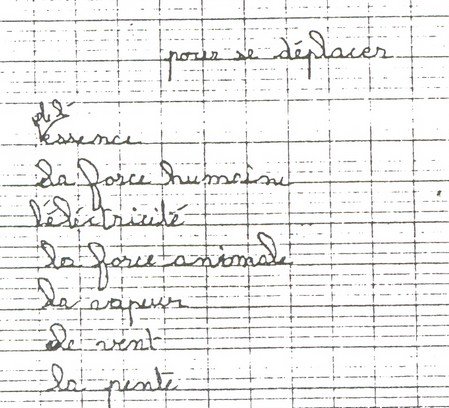 pour se déplacer
l'essence
la force humaine
l'éléctricité
la force animale
la vapeur
le vent
la pente